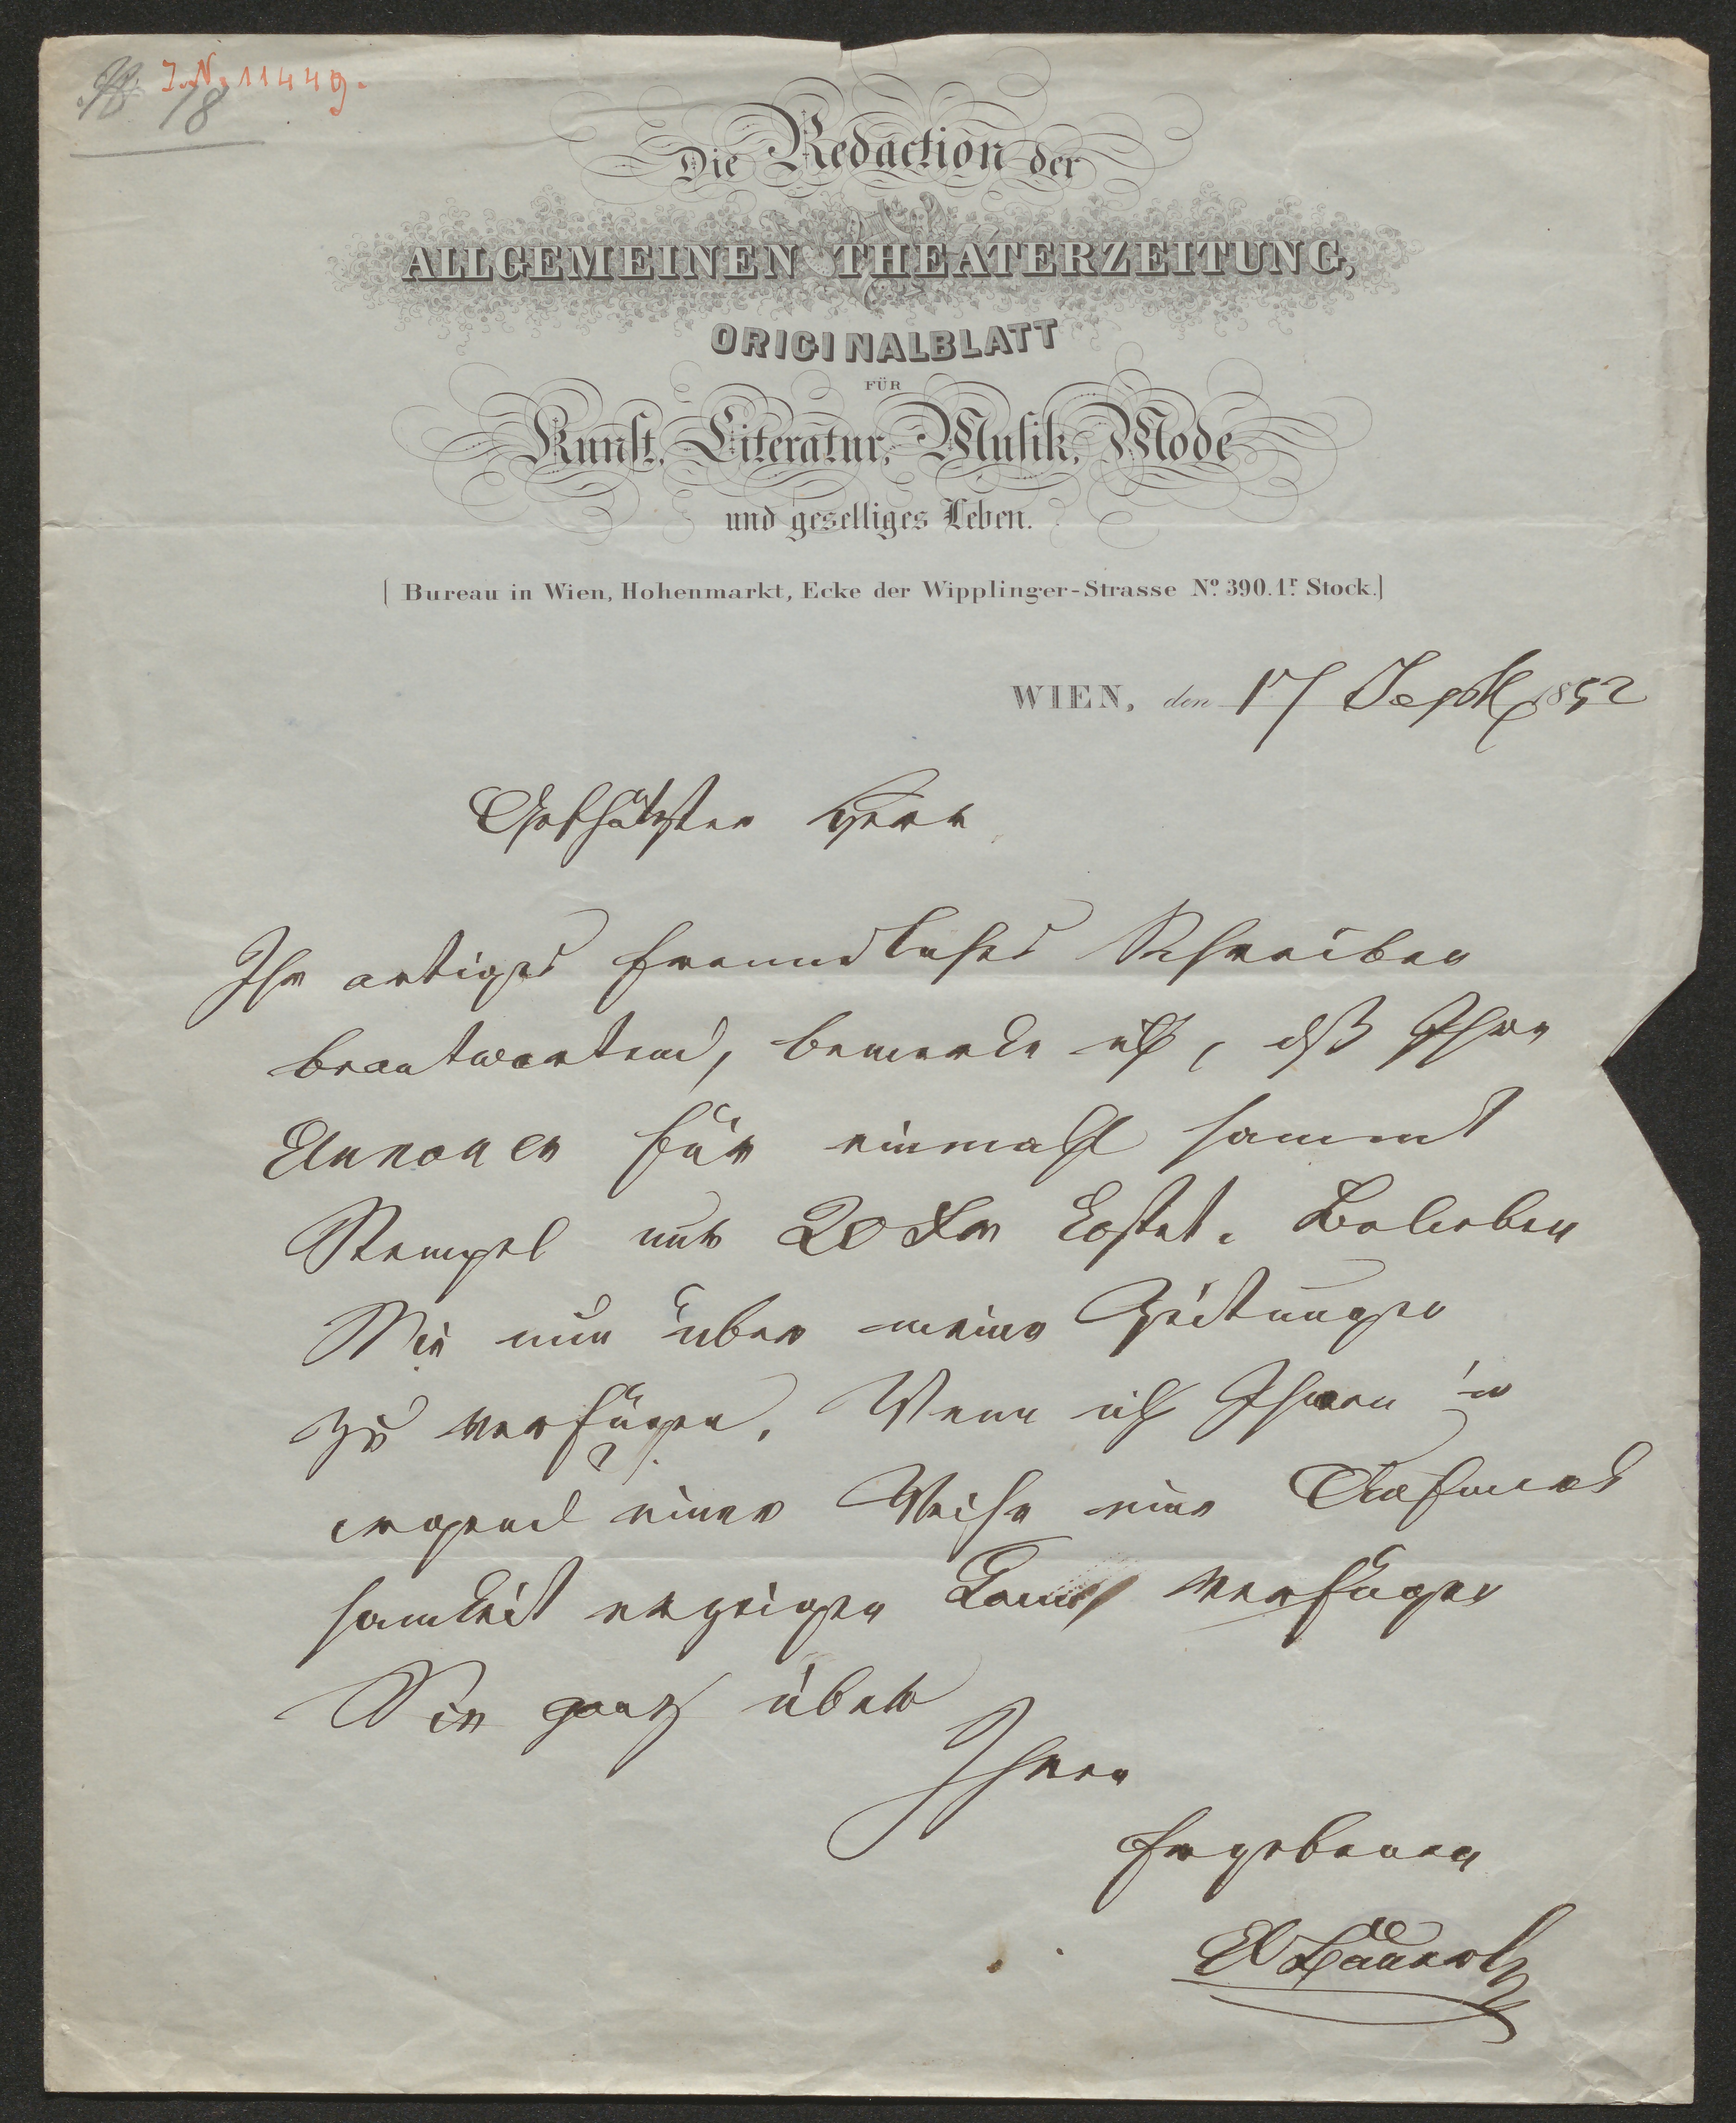 I. N. 11449.
18
Die Redaction der
ALLGEMEINEN THEATERZEITUNG,
ORIGINALBLATT
FÜR
Kunst, Literatur, Musik, Mode
und geselliges Leben.
[Bureau in Wien, Hohenmarkt, Ecke der Wipplinger-Strasse No. 390. 1r. Stock.]
WIEN, den 17 Sept 1852
Geschätzter Herr
Ihr artiges freundliches Schreiben
beantwortend, bemerke ich, dß Ihre
Annonce für einmahl sammt
Stempel nur 20 Kr kostet. Belieben
Sie nun über meine Zeitungen
zu verfügen. Wenn ich Ihnen in
irgend einer Weise eine Aufmerk
samkeit erzeigen kann, verfügen
Sie ganz über
Ihren
Ergebenen
Bäuerle